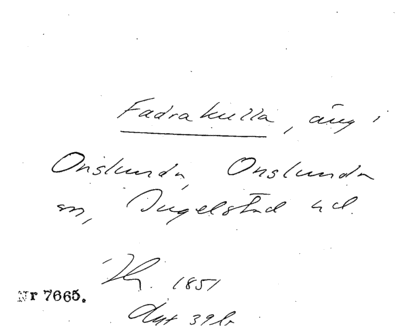 Fadrakulla, äng i
Onslunda, Onslunda
sn, Ingelstad hd.
1851
Nr 7665.